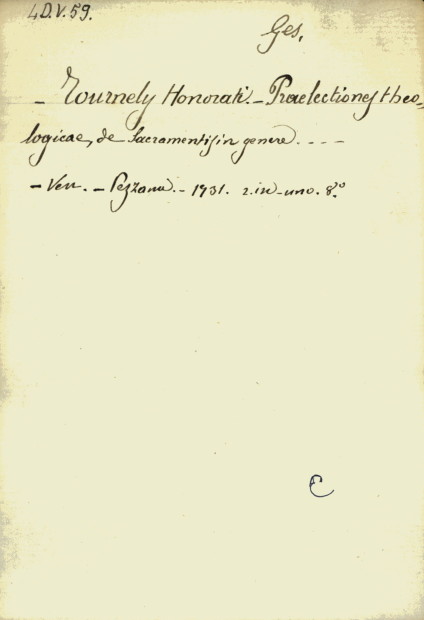 4D.V.59.
Ges.
- Tournely Honorati. - Praelectiones theo-
logicae, de Sacramentis in genere. - - -
- Ven. - Pezzana. - 1731. 2. in - uno. 8.º
C